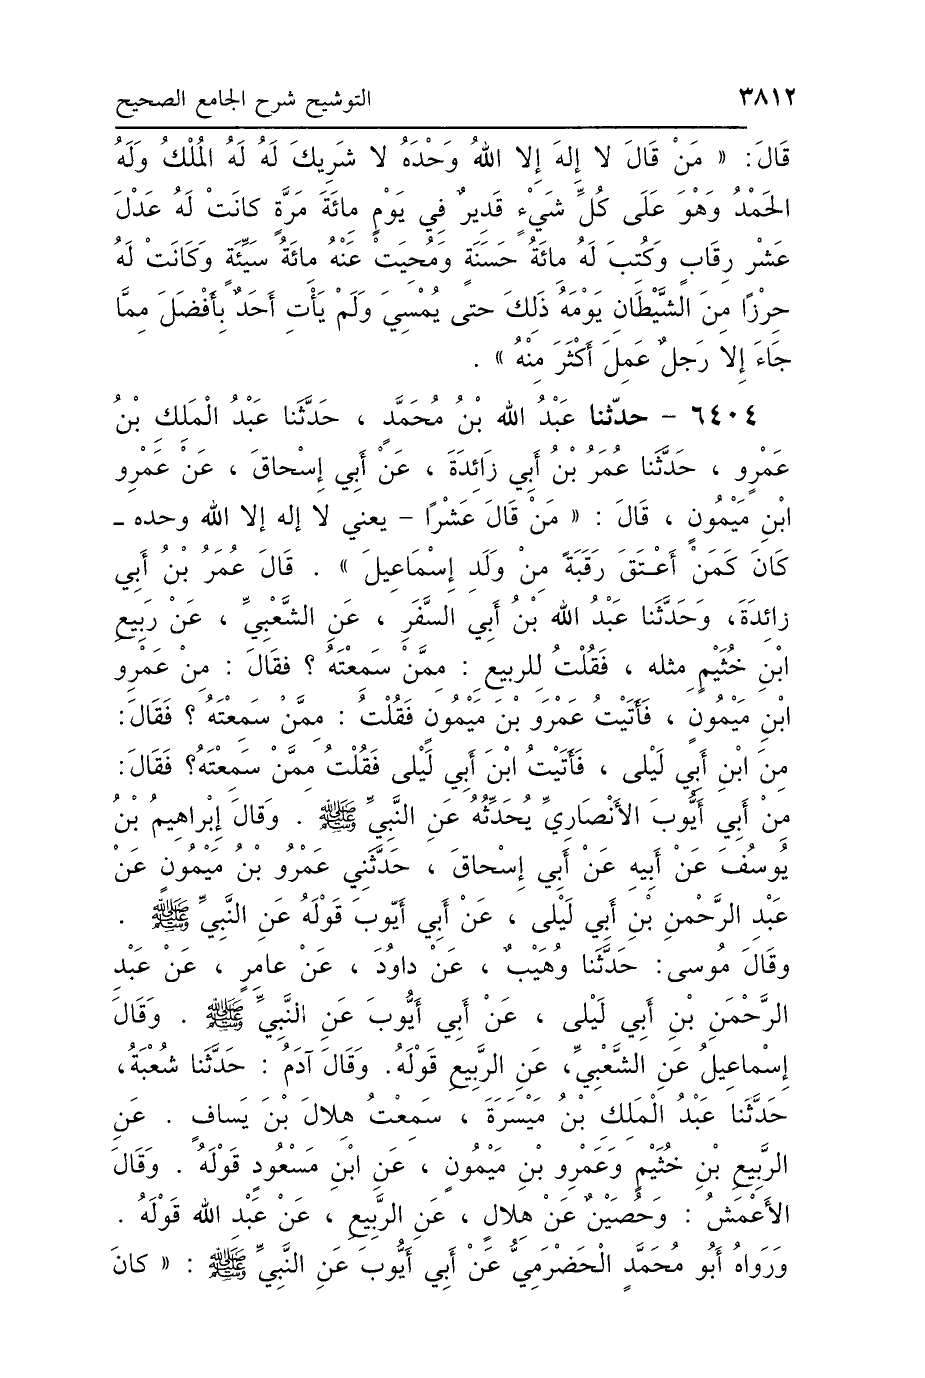 ٣٨١٢ التوشيح شرح الجامع الصحيح
قَالَ: « مَنْ قَالَ لا إِلهَ إِلا اللهُ وَحْدَهُ لا شَرِيكَ لَهُ لَهُ المُلْكُ وَلَهُ
الحَمْدُ وَهْوَ عَلَى كُلِّ شَيْءٍ قَدِيرٌ فِي يَوْمٍ مِائَةَ مَرَّةٍ كانَتْ لَهُ عَدْلَ
عَشْرِ رِقَابٍ وَكُتِبَ لَهُ مِائَةُ حَسَنَةٍ وَمُحِيَتْ عَنْهُ مِائَةُ سَيِّئَةٍ وَكَانَتْ لَهُ
حِرْزًا مِنَ الشَّيْطَانِ يَوْمَهُ ذَلِكَ حتى يُمْسِيَ وَلَمْ يَأْتِ أَحَدٌ بِأَفْضَلَ مِمَّا
جَاءَ إِلا رَجُلٌ عَمِلَ أَكْثَرَ مِنْهُ » .
٦٤٠٤ – حدّثنا عَبْدُ اللهِ بْنُ مُحَمَّدٍ ، حَدَّثَنا عَبْدُ الْمَلِكِ بْنُ
عَمْرٍو ، حَدَّثَنا عُمَرُ بْنُ أَبِي زَائِدَةَ ، عَنْ أَبِي إِسْحاقَ ، عَنْ عَمْرِو
ابْنِ مَيْمُونٍ ، قَالَ : « مَنْ قَالَ عَشْرًا – يعني لا إله إلا الله وحده –
كَانَ كَمَنْ أَعْتَقَ رَقَبَةً مِنْ وَلَدِ إِسْمَاعِيلَ » . قَالَ عُمَرُ بْنُ أَبِي
زائِدَةَ، وَحَدَّثَنا عَبْدُ اللهِ بْنُ أَبِي السَّفَرِ ، عَنِ الشَّعْبِيِّ ، عَنْ رَبِيعِ
ابْنِ خُثَيْمٍ مثله ، فَقُلْتُ لِلربيعِ : مِمَّنْ سَمِعْتَهُ ؟ فقَالَ : مِنْ عَمْرِو
ابْنِ مَيْمُونٍ ، فَأَتَيْتُ عَمْرَو بْنَ مَيْمُونٍ فَقُلْتُ : مِمَّنْ سَمِعْتَهُ ؟ فَقَالَ:
مِنَ ابْنِ أَبِي لَيْلى ، فَأَتَيْتُ ابْنَ أَبِي لَيْلى فَقُلْتُ مِمَّنْ سَمِعْتَهُ؟ فَقَالَ:
مِنْ أَبِي أَيُّوبَ الأَنْصَارِيِّ يُحَدِّثُهُ عَنِ النَّبِيِّ ﷺ . وَقَالَ إِبْراهِيمُ بْنُ
يُوسُفَ عَنْ أَبِيهِ عَنْ أَبِي إِسْحاقَ ، حَدَّثَنِي عَمْرُو بْنُ مَيْمُونٍ عَنْ
عَبْدِ الرَّحْمنِ بْنِ أَبِي لَيْلى ، عَنْ أَبِي أَيّوبَ قَوْلَهُ عَنِ النَّبِيِّ ﷺ .
وقَالَ مُوسى: حَدَّثَنا وُهَيْبٌ ، عَنْ داوُدَ ، عَنْ عامِرٍ ، عَنْ عَبْدِ
الرَّحْمَنِ بْنِ أَبِي لَيْلى ، عَنْ أَبِي أَيُّوبَ عَنِ النَّبِيِّ ﷺ . وقَالَ
إِسْماعِيلُ عَنِ الشَّعْبِيِّ، عَنِ الرَّبِيعِ قَوْلَهُ. وَقَالَ آدَمُ : حَدَّثَنا شُعْبَةُ،
حَدَّثَنا عَبْدُ الْمَلِكِ بْنُ مَيْسَرَةَ ، سَمِعْتُ هِلالَ بْنَ يَسافٍ . عَنِ
الرَّبِيعِ بْنِ خُثَيْمٍ وَعَمْرِو بْنِ مَيْمُونٍ ، عَنِ ابْنِ مَسْعُودٍ قَوْلَهُ . وَقَالَ
الأَعْمَشُ : وَحُصَيْنٌ عَنْ هِلالٍ ، عَنِ الرَّبِيعِ ، عَنْ عَبْدِ اللهِ قَوْلَهُ .
وَرَوَاهُ أَبُو مُحَمَّدٍ الْحَضْرَمِيُّ عَنْ أَبِي أَيُّوبَ عَنِ النَّبِيِّ ﷺ : « كانَ